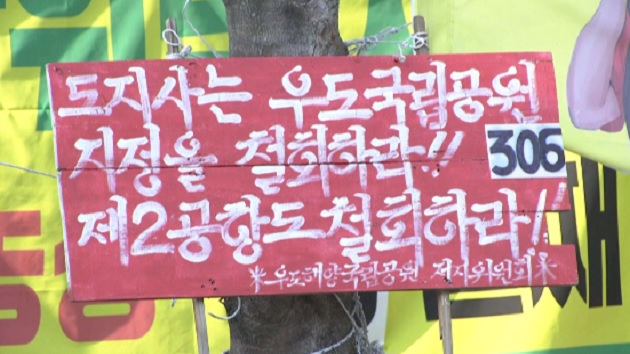 도지사는 우도국립공원
지정을 철회하라!!
306
제2공항도 철회하라!!
*우도해양국립공원 저지위원회*